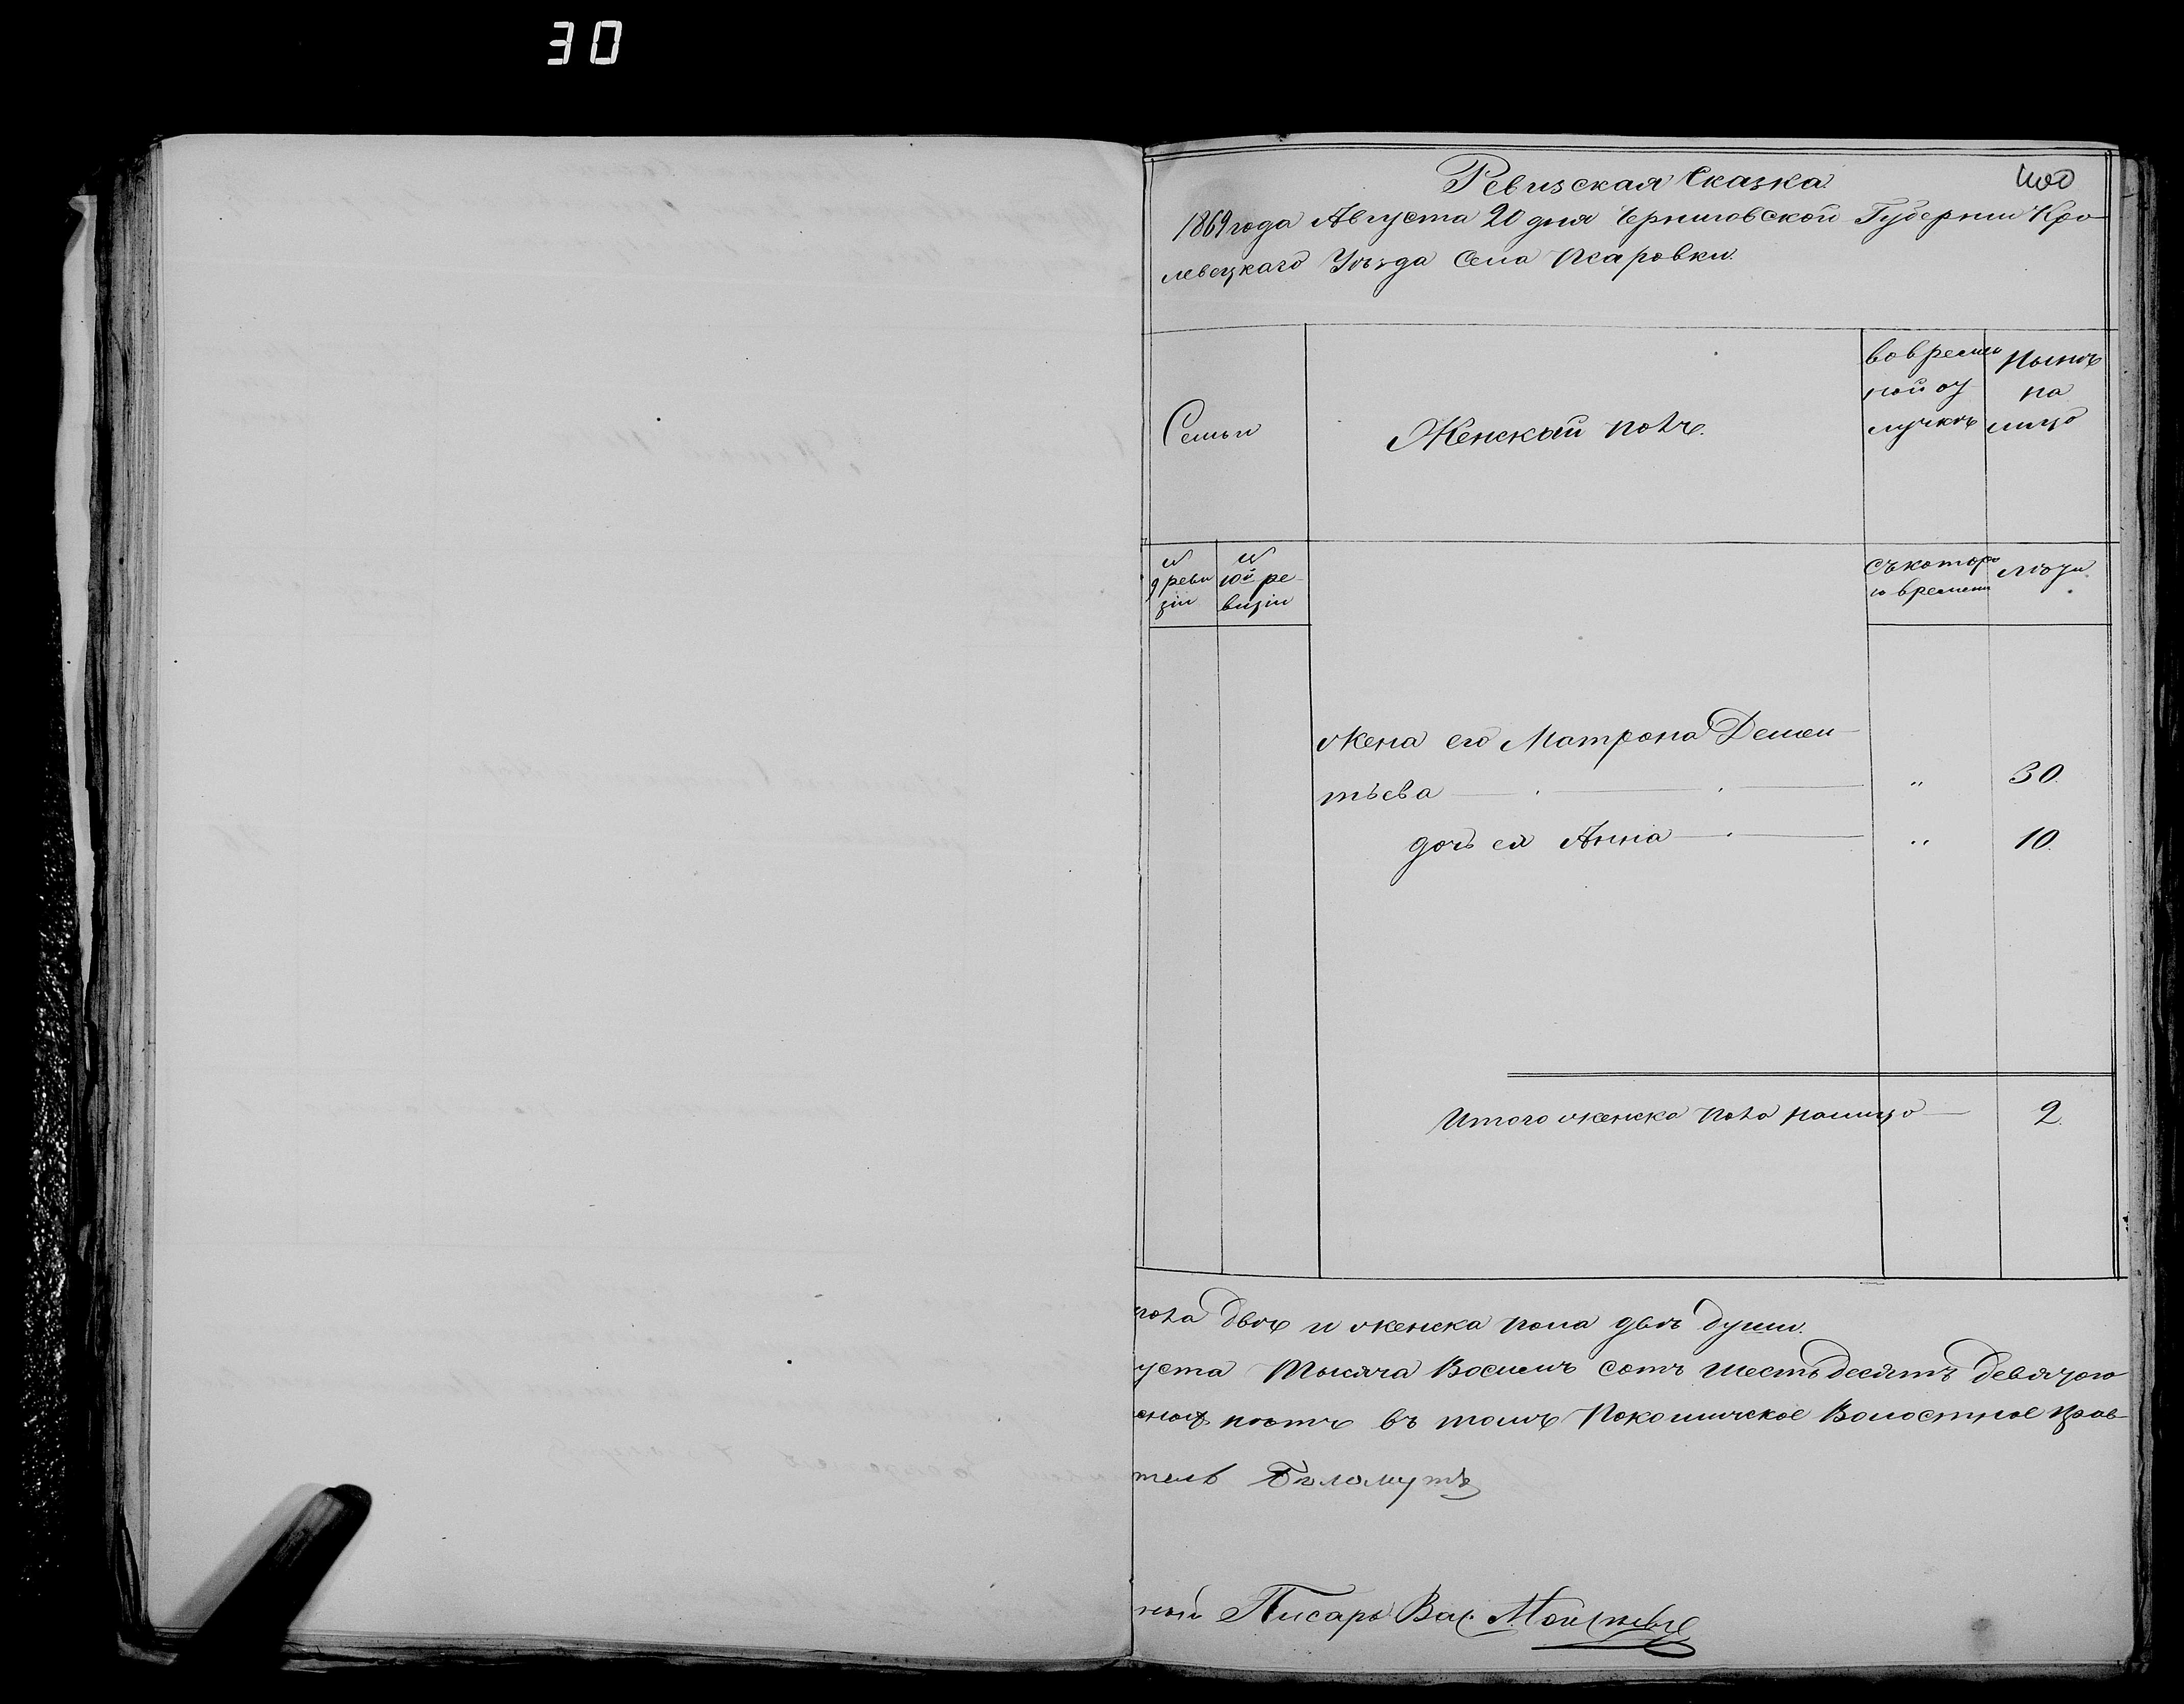 30
Ревизская Сказка.
1869 года Августа 20 дня Черниговской Губернии Кро-
левецкаго Уѣзда Села Псаровки.
Семьи
Женскай полъ.
во времен
ной от
лучкѣ
Нынѣ
на
лицо
№
9 реви
зіи
№
10й ре-
визіи
Съ которо
го времени
Лѣта
жена его Матрона Демен-
тьева
"
30.
дочь ея Анна
"
10.
Итого женска пола налицо
2.
пола двѣ и женска пола двѣ души.
уста Тысяча Восемь сотъ шестьдесятъ девятого
въ томъ Покошичское Волостное прав-
тель Биломутъ
ный Писарь Вас.